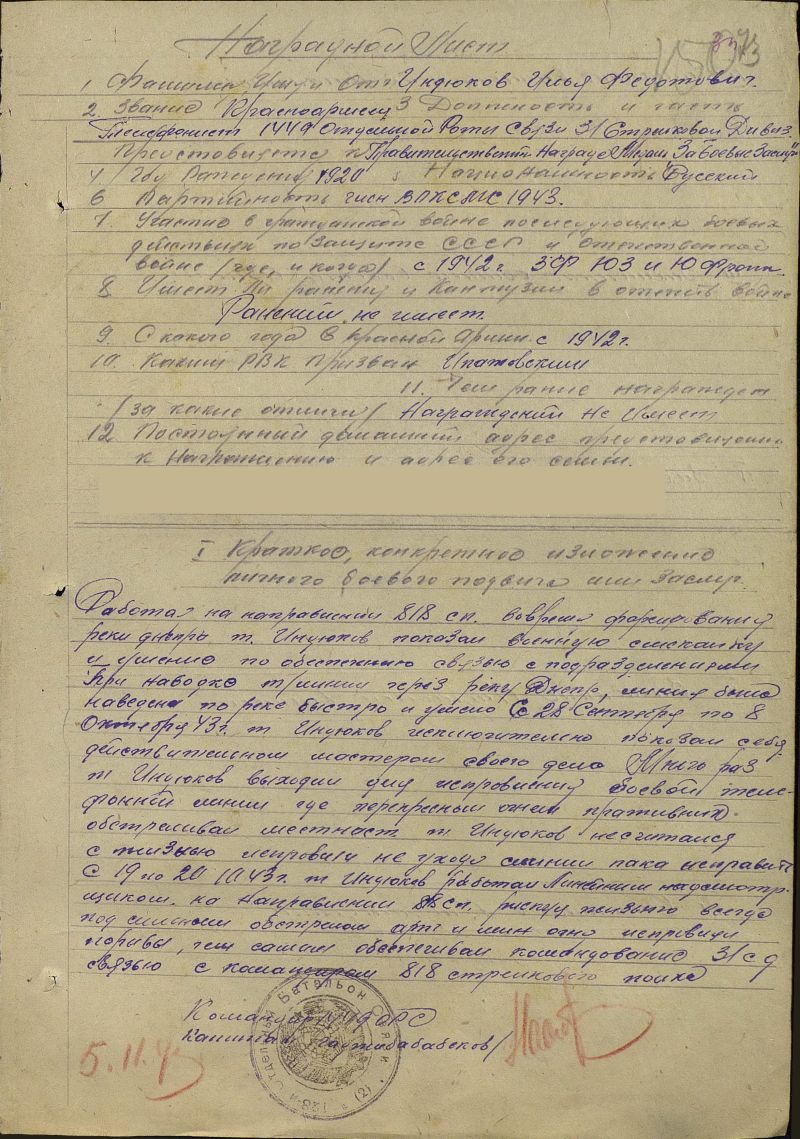 Наградной Лист
1 Фамилия Имя и Отч Индюков Илья Федотович.
2. Звание Красноармеец 3 Должность и часть
Телефонист 1449 Отдельной Роты Связи 31 Стрелковой Дивиз.
Представляется к Правительственной Награде Медали За Боевые Заслуги
4 Год Рождения 1920 5 Национальность Русский
6 Партийность член ВЛКСМ с 1943.
7. Участие в гражданской войне последующих боевых
действиях по защите СССР и отечественной
войне (где, и когда) с 1942 г. ЗФ ЮЗ и Ю Фронт.
8 Имеет ли ранения и Контузии в отечеств войне
Ранений не имеет.
9. С какого года в Красной Армии с 1942 г.
10. Каким РВК Призван Ипатовским
11. Чем ранее награжден
(за какие отличия) Награждений Не Имеет
12 Постоянный домашний адрес представляемого
к Награждению и адрес его семьи.
I Краткое, конкретное изложение
личного боевого подвига или заслуг.
Работая на направлении 818 сп. вовремя форсирования
реки днепра т. Индюков показал военную смекалку
и умение по обеспечению связью с подразделениями
При наводке т/линии через реку Днепр, линия была
наведена по реке быстро и умело С 28 Сентября по 8
Октября 43 г. т Индюков исключительно показал себя
действительном мастером своего дела Много раз
т Индюков выходил для исправления боевой теле-
фонной линии где перекресным огнем противник
обстреливал местност т Индюков несчитался
с жизнью исправлял не уходя слинии пака исправит
С 19 по 20 10.43 г. т Индюков работал Линейным надсмотр-
щиком. на Направлении 818 сп. рискуя жизнью всегда
под сильном обстрелом арт и мин огня исправлял
порывы, тем самым обеспечивал командование 31 с д
связью с командиром 818 стрелкового полка
Командир 1449 ОРС
Капитан
5.11.43
Отдельный Батальон Связи